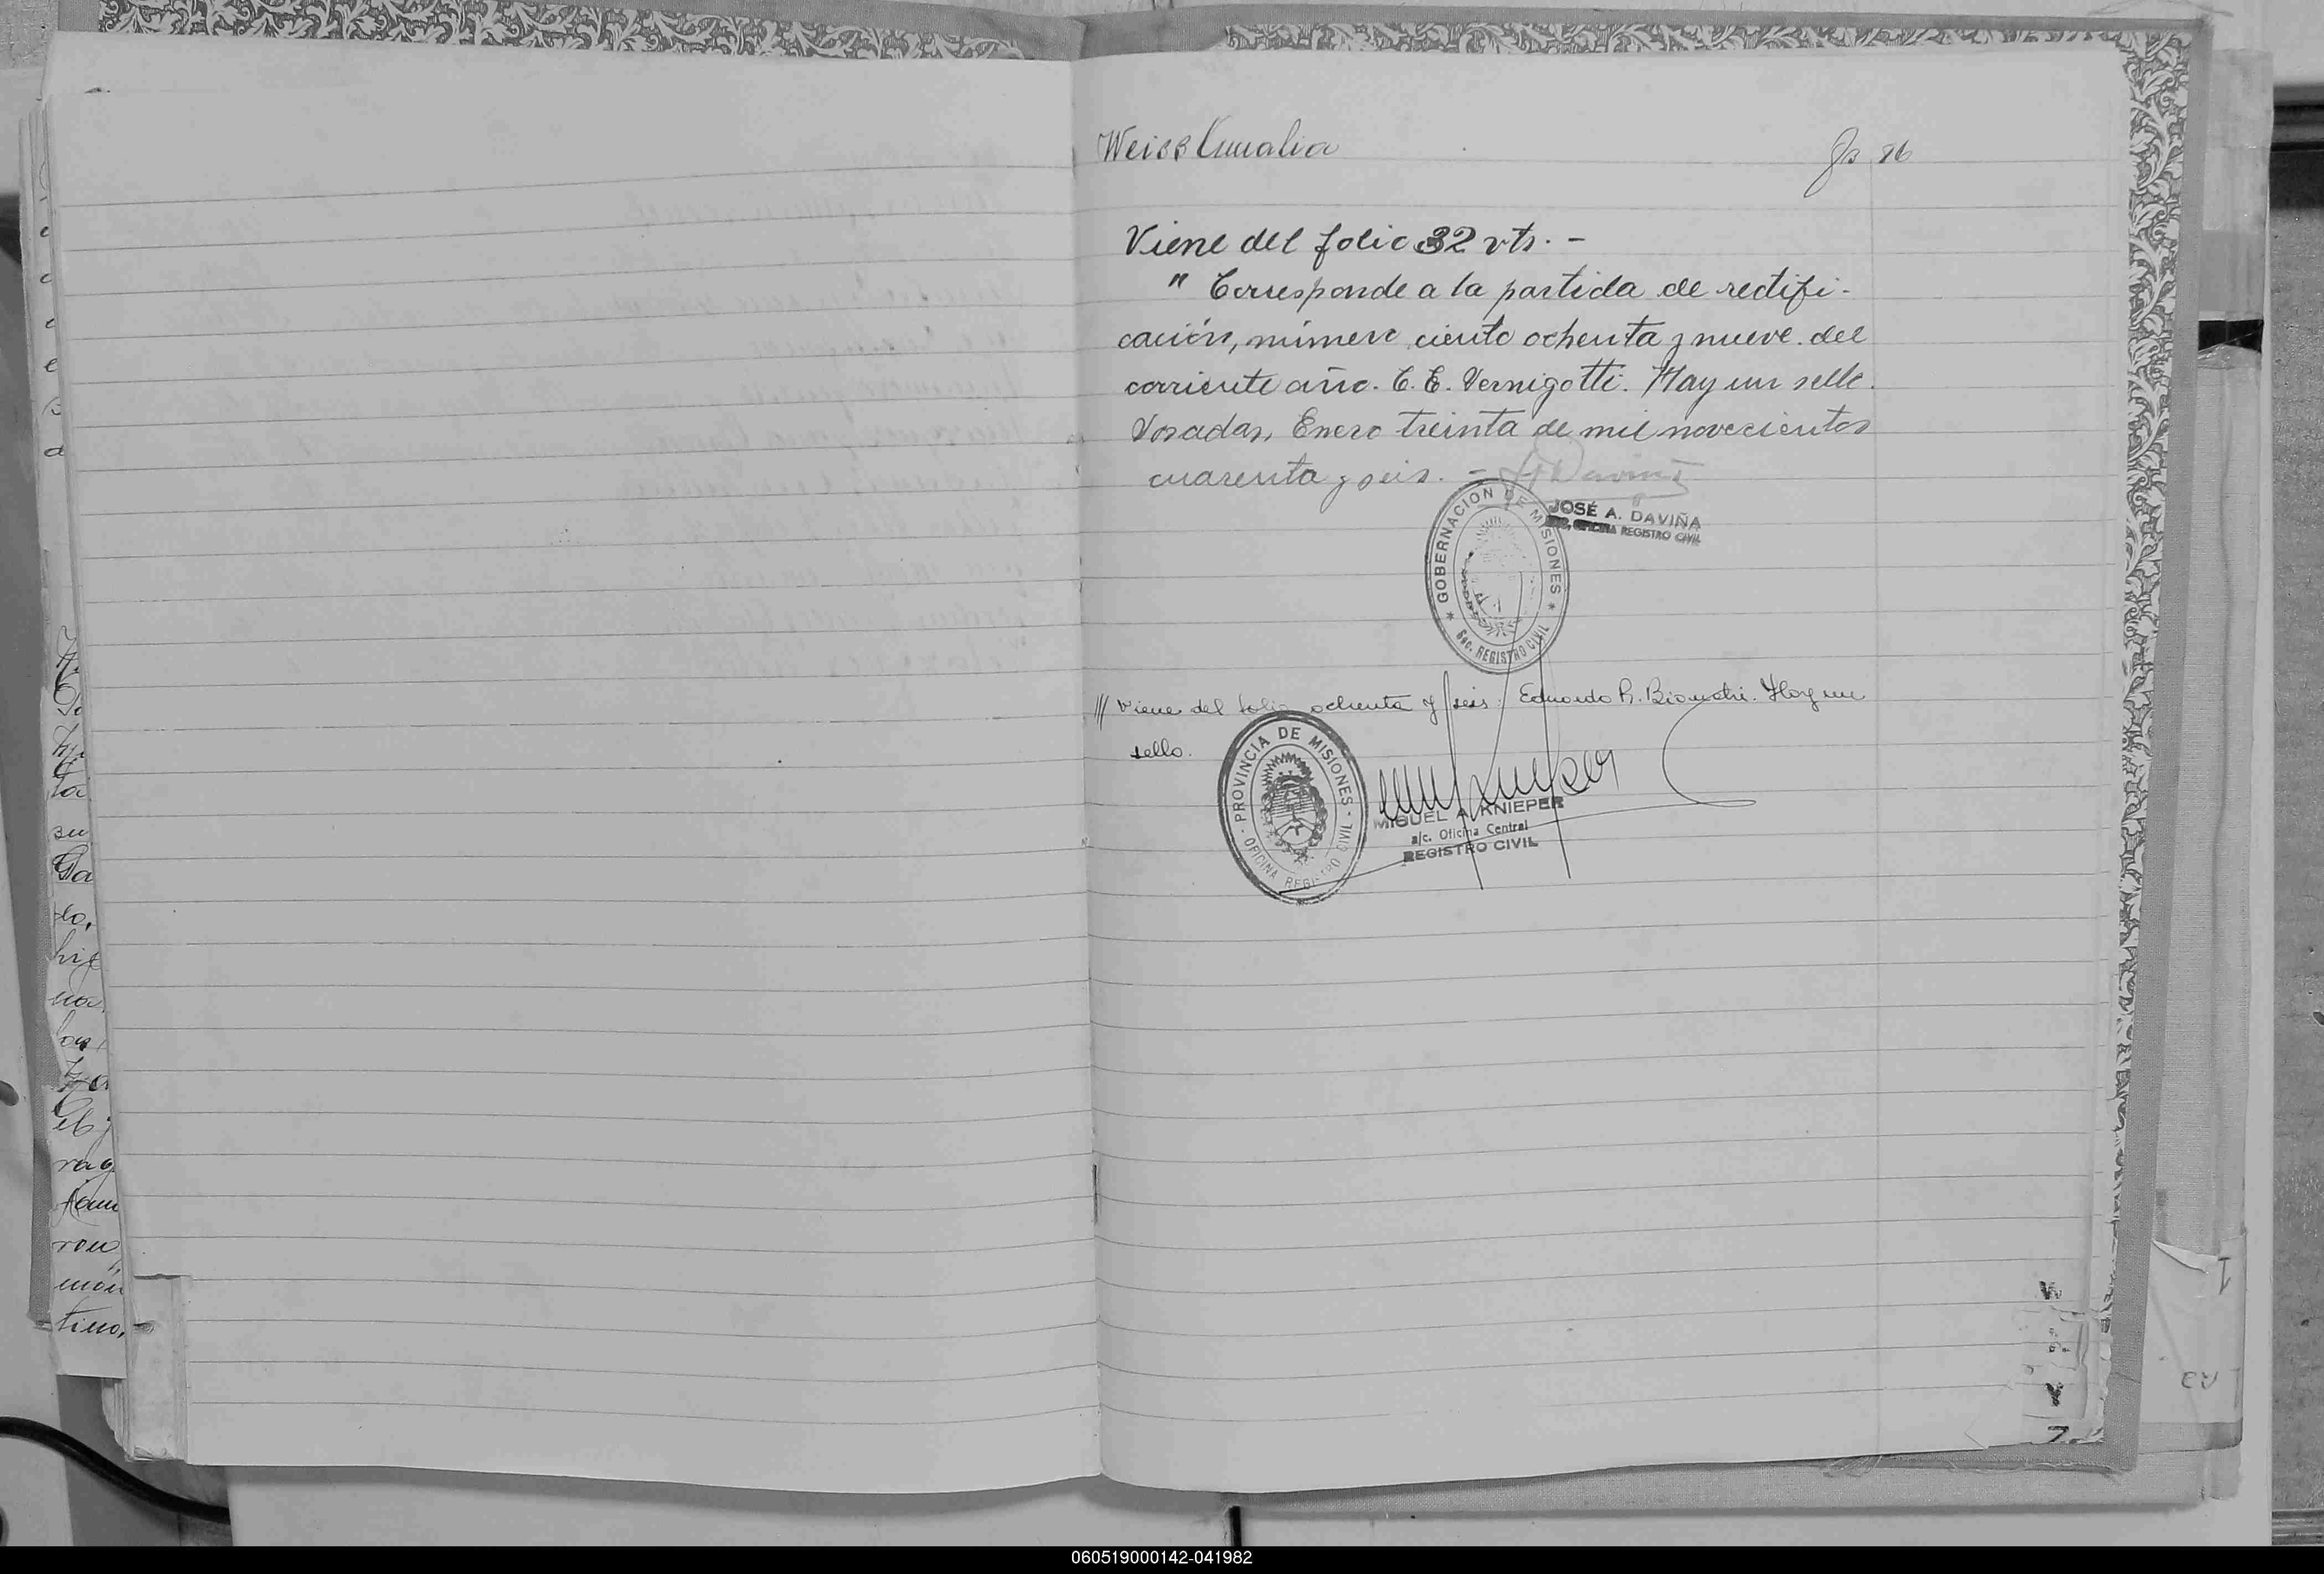 Weiss Amalia fs 86
Viene del folio 32 vto. -
" Corresponde a la partida de rectifi-
cación, número ciento ochenta y nueve del
corriente año. C. E. Vernigotti. Hay un sello.
Posadas, Enero treinta de mil novecientos
cuarenta y seis. -
GOBERNACION DE MISIONES
Sec. REGISTRO CIVIL
JOSÉ A. DAVIÑA
OFICINA REGISTRO CIVIL
/// Viene del folio ochenta y seis. Eduardo R. Bianchi. Hay un
sello.
PROVINCIA DE MISIONES
OFICINA REGISTRO CIVIL
MIGUEL A. KNIEPER
a/c. Oficina Central
REGISTRO CIVIL
su
ta
do,
hij
una
rag
rou
tino,
V
Y
Z
060519000142-041982